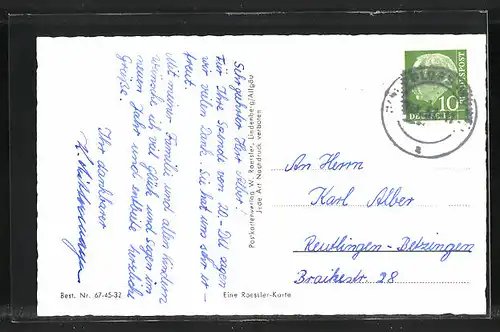 Sehr geehrter Herr Alber!
Für Ihre Spende von 20.-DM sagen
wir vielen Dank. Sie hat uns sehr er-
freut.
Mit meiner Familie und allen Kindern
wünsche ich viel Glück und Segen im
neuen Jahr und entbiete herzliche
Grüße.
Ihr dankbarer
Postkartenverlag W. Raestler, Lindenberg/Allgäu
Jede Art Nachdruck verboten
BUNDESPOST
10
An Herrn
Karl Alber
Reutlingen-Betzingen
Braikestr. 28
Best. Nr. 67-45-32
Eine Raestler-Karte